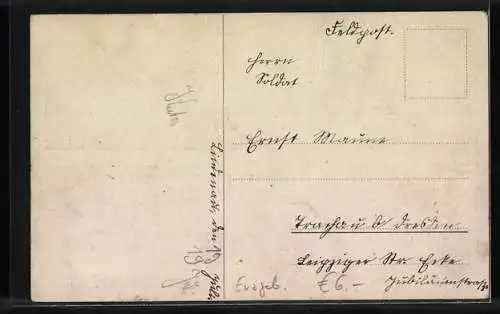 Feldpost.
Herrn
Soldat
Ernst Maune
Trachau b Dresden
Leipziger Str. Ecke
Jubiläumstraße
Lindenau, den 19
€6.-